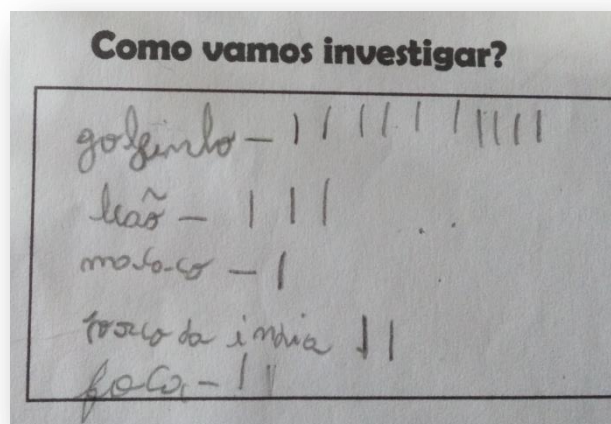 Como vamos investigar?
golfinho - | | | | | | | | | |
leão - | | |
macaco - |
porco da índia | |
foca - | |